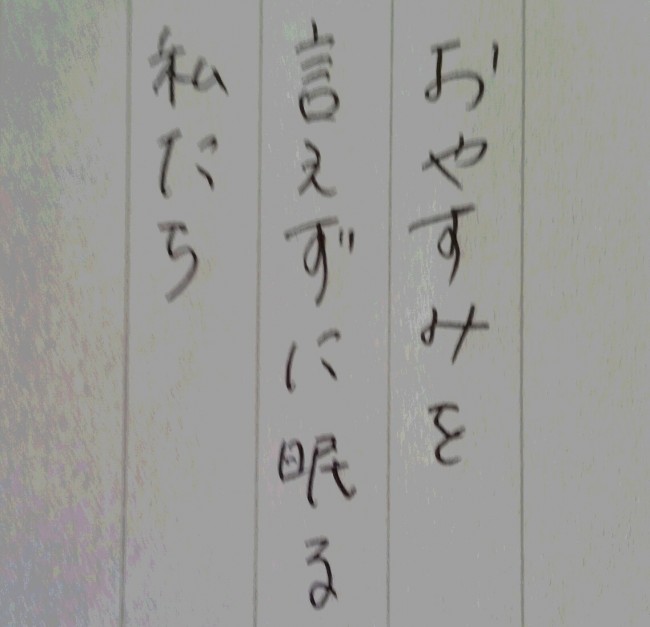 おやすみを
言えずに眠る
私たち